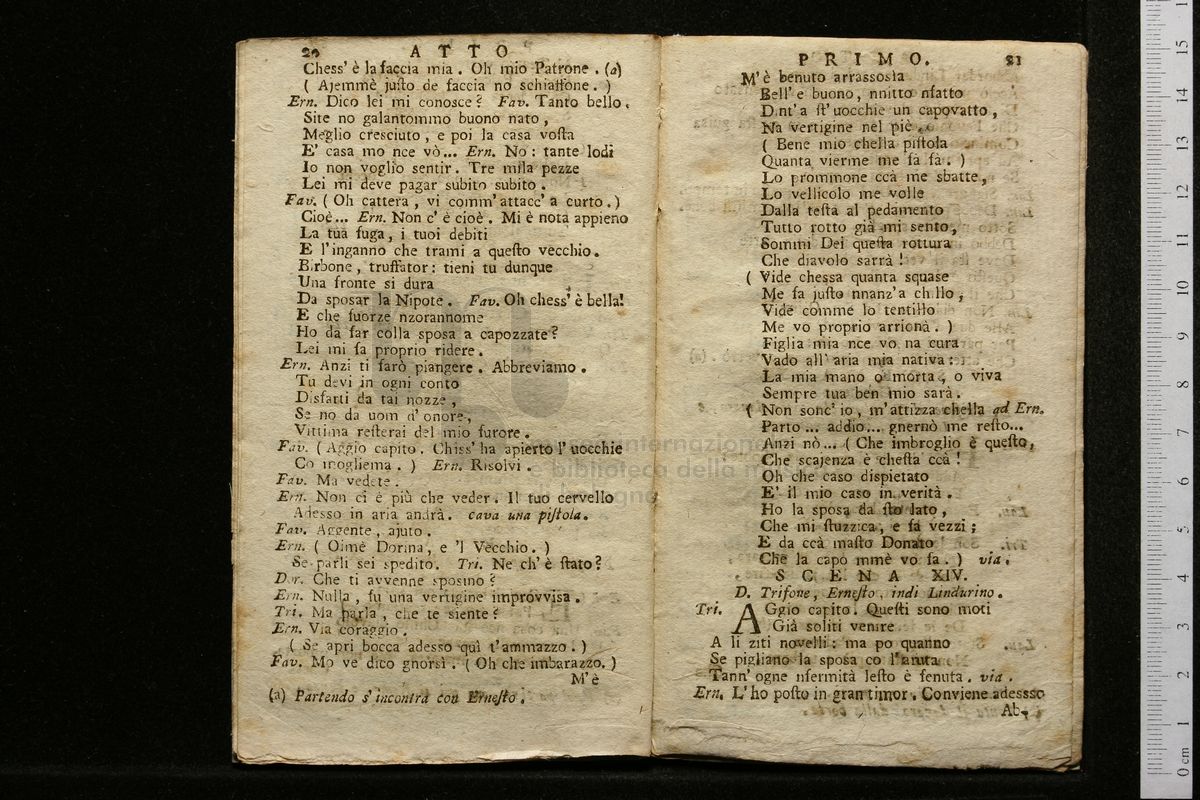 20 ATTO
Chess' è la faccia mia. Oh mio Patrone. (a)
( Ajemmè justo de faccia no schiaffone. )
Ern. Dico lei mi conosce? Fav. Tanto bello,
Site no galantommo buono nato,
Meglio cresciuto, e poi la casa vosta
E' casa mo nce vò... Ern. No: tante lodi
Io non voglio sentir. Tre mila pezze
Lei mi deve pagar subito subito.
Fav. ( Oh cattera, vi comm' attacc' a curto. )
Cioè... Ern. Non c' è cioè. Mi è nota appieno
La tua fuga, i tuoi debiti
E l'inganno che trami a questo vecchio.
Birbone, truffator: tieni tu dunque
Una fronte si dura
Da sposar la Nipote. Fav. Oh chess' è bella!
E che fuorze nzorannome
Ho da far colla sposa a capozzate?
Lei mi fa proprio ridere.
Ern. Anzi ti farò piangere. Abbreviamo.
Tu devi in ogni conto
Disfarti da tai nozze,
Se no da uom d'onore,
Vittima resterai del mio furore.
Fav. ( Aggio capito. Chiss' ha apierto l' uocchie
Co mogliema. ) Ern. Risolvi.
Fav. Ma vedete.
Ern. Non ci è più che veder. Il tuo cervello
Adesso in aria andrà. cava una pistola.
Fav. Aggente, ajuto.
Ern. ( Oimè Dorina, e 'l Vecchio. )
Se parli sei spedito. Tri. Ne ch' è stato?
Dor. Che ti avvenne sposino?
Ern. Nulla, fu una vertigine improvvisa.
Tri. Ma parla, che te siente?
Ern. Via coraggio.
( Se apri bocca adesso quì t'ammazzo. )
Fav. Mo ve dico gnorsì. ( Oh che imbarazzo. )
M'è
(a) Partendo s'incontra con Ernesto.
PRIMO. 21
M'è benuto arrassosia
Bell' e buono, nnitto nfatto
Dint'a st' uocchie un capovatto,
Na vertigine nel piè.
( Bene mio chella pistola
Quanta vierme me fa fà. )
Lo prommone ccà me sbatte,
Lo vellicolo me volle
Dalla testa al pedamento
Tutto rotto già mi sento,
Sommi Dei questa rottura
Che diavolo sarrà!
( Vide chessa quanta squase
Me fa justo nnanz'a chillo,
Vide comme lo tentillo
Me vo proprio arrionà. )
Figlia mia nce vo na cura
Vado all' aria mia nativa:
La mia mano o morta, o viva
Sempre tua ben mio sarà.
( Non sonc' io, m'attizza chella ad Ern.
Parto... addio... gnernò me resto...
Anzi nò... ( Che imbroglio è questo,
Che scajenza è chesta ccà!
Oh che caso dispietato
E' il mio caso in verità.
Ho la sposa da sto lato,
Che mi stuzzica, e fa vezzi;
E da ccà masto Donato
Che la capo mmè vo fa. ) via.
SCENA XIV.
D. Trifone, Ernesto, indi Lindurino.
Tri. AGgio capito. Questi sono moti
Già soliti venire
A li ziti novelli: ma po quanno
Se pigliano la sposa co l'anuta
Tann' ogne nfermità lesto è fenuta. via.
Ern. L'ho posto in gran timor. Conviene adessso
Ab-
internazionale
e biblioteca della musica
0 cm 1 2 3 4 5 6 7 8 9 10 11 12 13 14 15